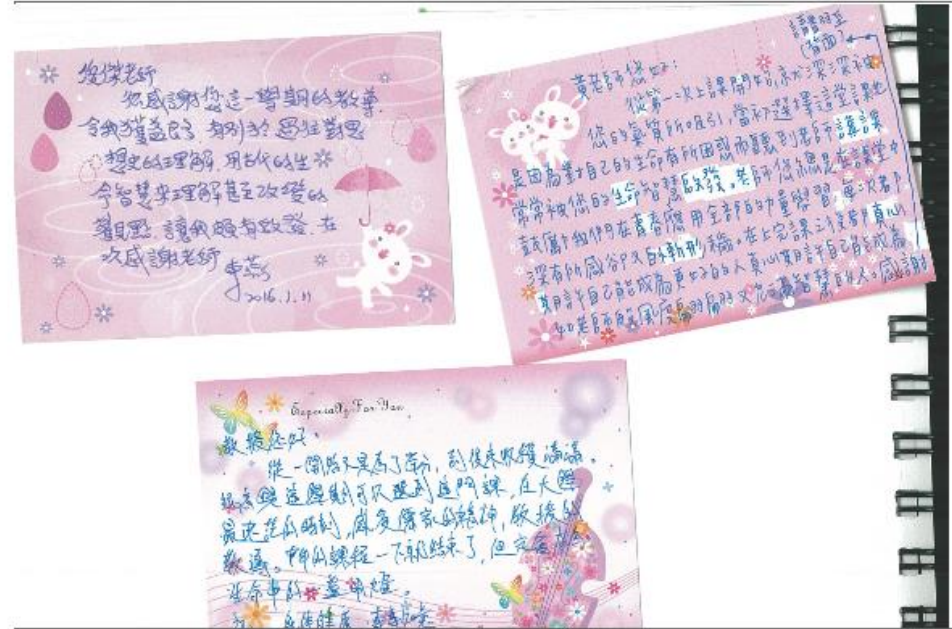 俊傑老師
很感謝您這一學期的教導,
令我獲益良多, 有別於過往對思
想史的理解, 用古代的生
命智慧來理解甚至改變的
觀點, 讓我頗有啟發, 在
次感謝老師
2016.1.11
請翻至
(背面)
黃老師您好:
從第一次上課開始就深深被
您的氣質所吸引,當初選擇這堂課也
是因為對自己的生命有所困惑而聽到老師講課
常常被您的生命智慧啟發。老師您總是在課堂中
鼓勵我們在青春應用全部的力量學習,每次都
深有所感卻又自慚形穢。在上完課之後都真心
期許自己能成為更好的人真心期許自己能成為
如老師般風度翩翩又充滿智慧的人。感謝
Especially For You
教授您好,
從一開始只是為了學分,到後來收穫滿滿。
很高興這學期可以選到這門課,在大學
最迷茫的時刻,感受儒家的精神,教授的
教誨。
課程一下就結束了,但
生命中的一盞明燈。
身體健康